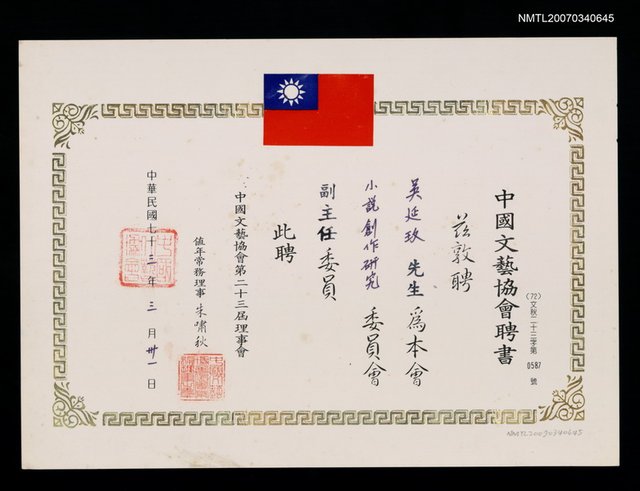 NMTL20070340645
中國文藝協會聘書
(72)文秋二十三字第0587號
茲敦聘
吳延玫先生為本會
小說創作研究委員會
副主任委員
此聘
中國文藝協會第二十三屆理事會
值年常務理事 朱嘯秋
中華民國七十三年三月卅一日
NMTL20070340645